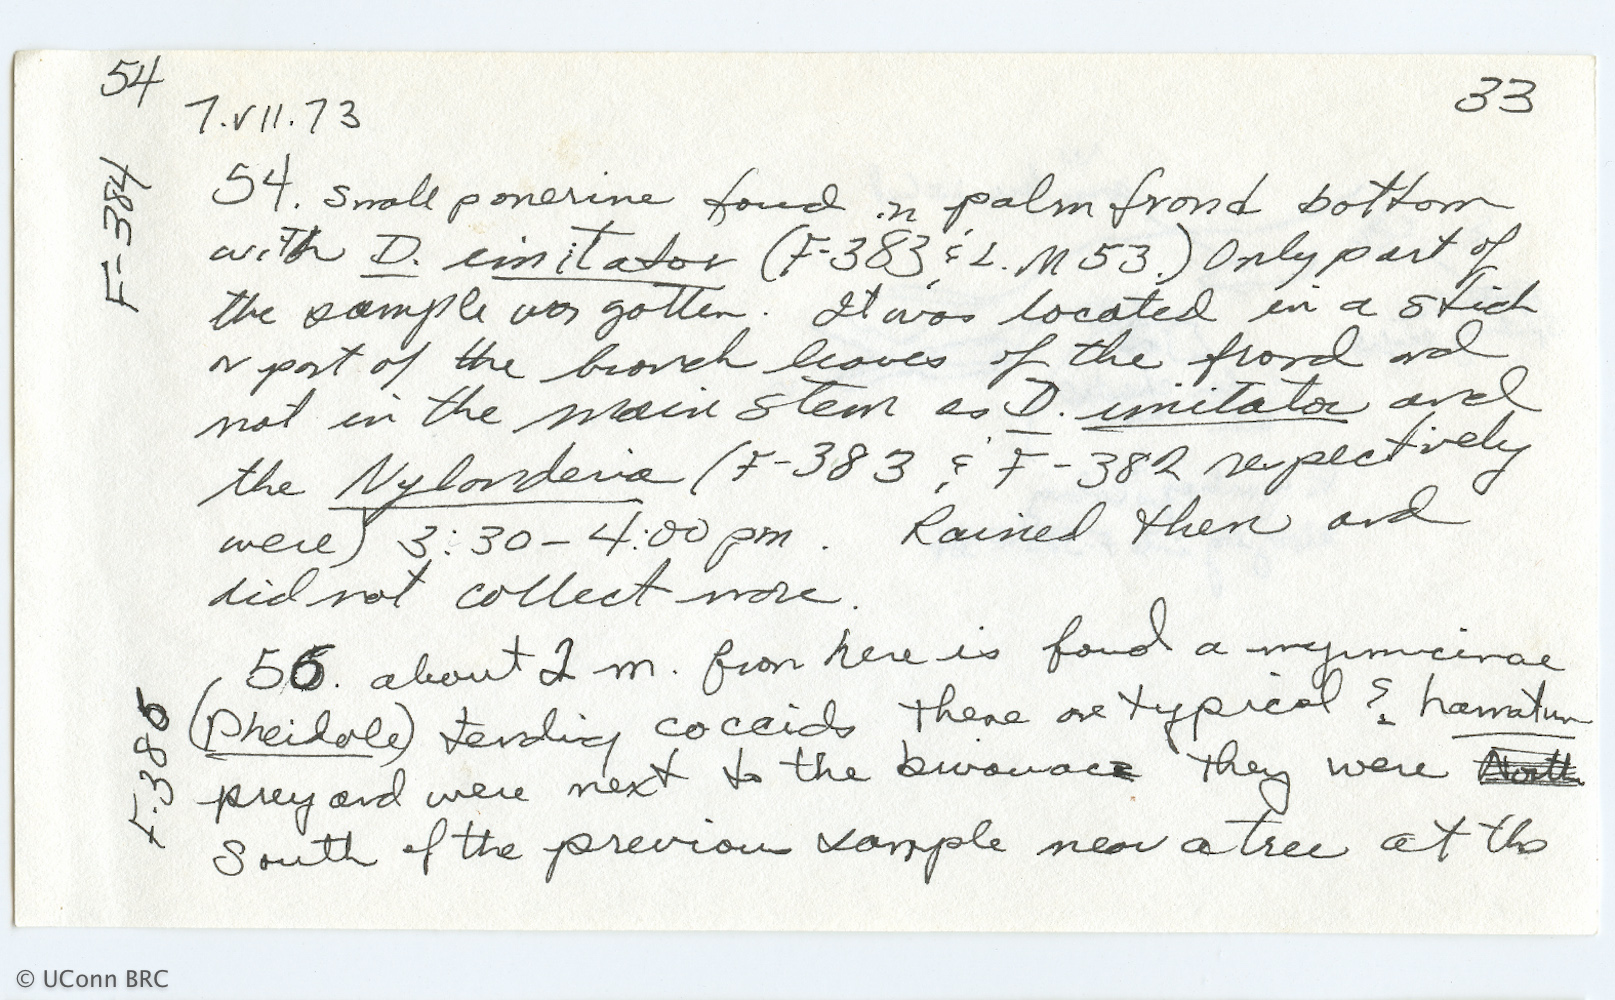 54
33
7.VII.73
F-384
54. Small ponerine foud in palm frond bottom
with D. imitator (F-383 & L. M 53.) Only part of
the sample was gotten. It was located in a stick
or part of the branch leaves of the frond and
not in the main stem as D. imitator and
the Nylanderia (F-383 & F-382 respectively
were) 3:30-4:00 pm. Rained then and
did not collect more.
F-386
56. about 2 m. from here is foud a myrmicinae
(Pheidole) tending coccids These are typical E. hamatum
prey and were next to the bivouac They were North
South of the previous sample near a tree at the
© UConn BRC